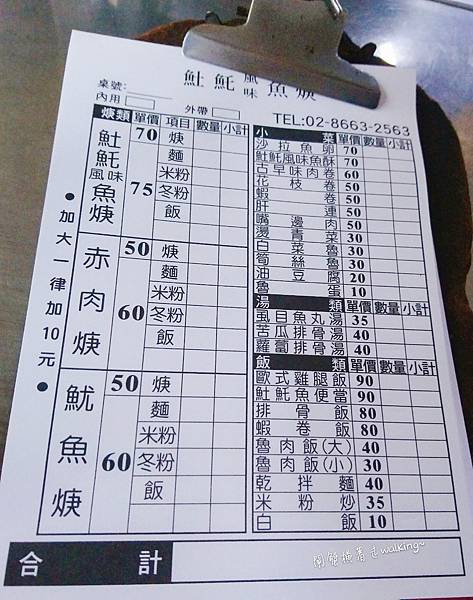 魠魠風味魚焿
桌號:
內用 外帶
TEL:02-8663-2563
焿類 單價 項目 數量 小計
魠魠風味魚焿
70 焿
75 麵
米粉
冬粉
飯
赤肉焿
50 焿
60 麵
米粉
冬粉
飯
魷魚焿
50 焿
60 麵
米粉
冬粉
飯
●加大一律加10元●
小菜 單價 數量 小計
沙拉魚卵 70
魠魠風味魚酥 70
古早味肉卷 60
花枝卷 50
蝦卷 50
肝連 50
嘴邊肉 50
燙青菜 30
白菜魯 30
筍絲魯 30
油豆腐 20
魯蛋 10
湯類 單價 數量 小計
虱目魚丸湯 35
苦瓜排骨湯 40
蘿蔔排骨湯 40
飯類 單價 數量 小計
歐式雞腿飯 90
魠魠魚便當 90
排骨飯 80
蝦卷飯 80
魯肉飯(大) 40
魯肉飯(小) 30
乾拌麵 40
米粉炒 35
白飯 10
合計
walking~